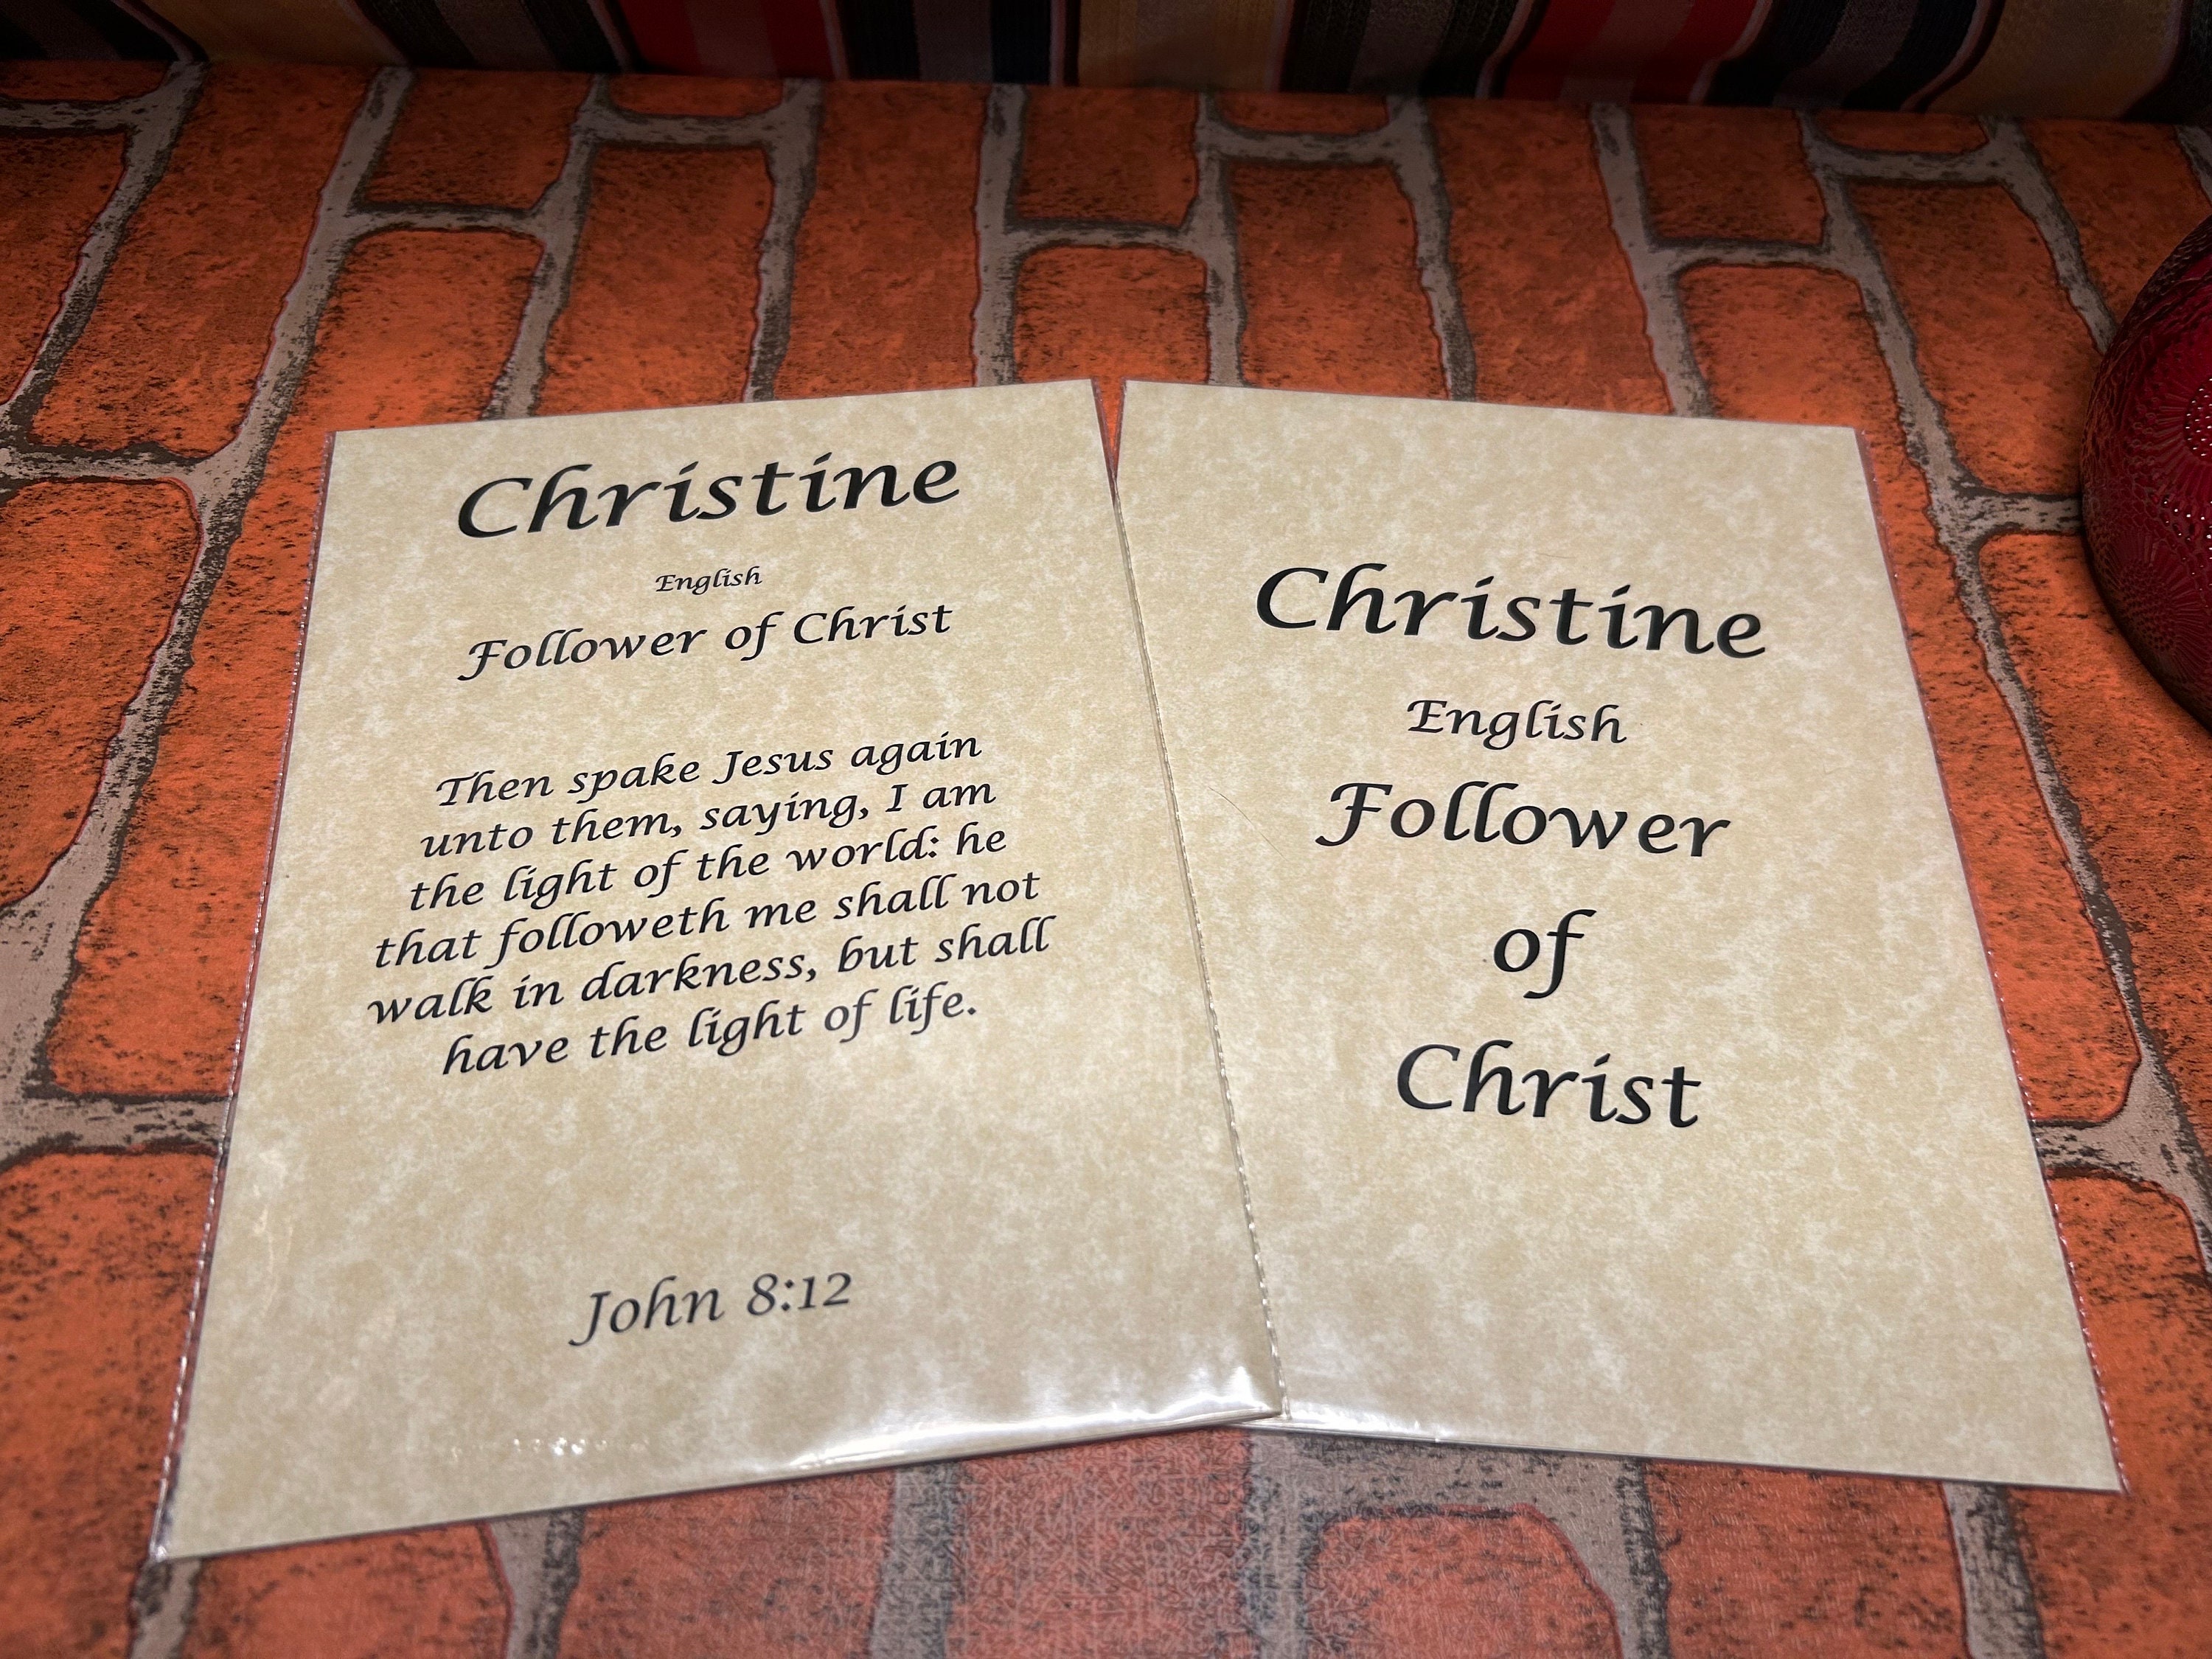 Christine
English
Follower of Christ
Then spake Jesus again
unto them, saying, I am
the light of the world: he
that followeth me shall not
walk in darkness, but shall
have the light of life.
John 8:12
Christine
English
Follower
of
Christ